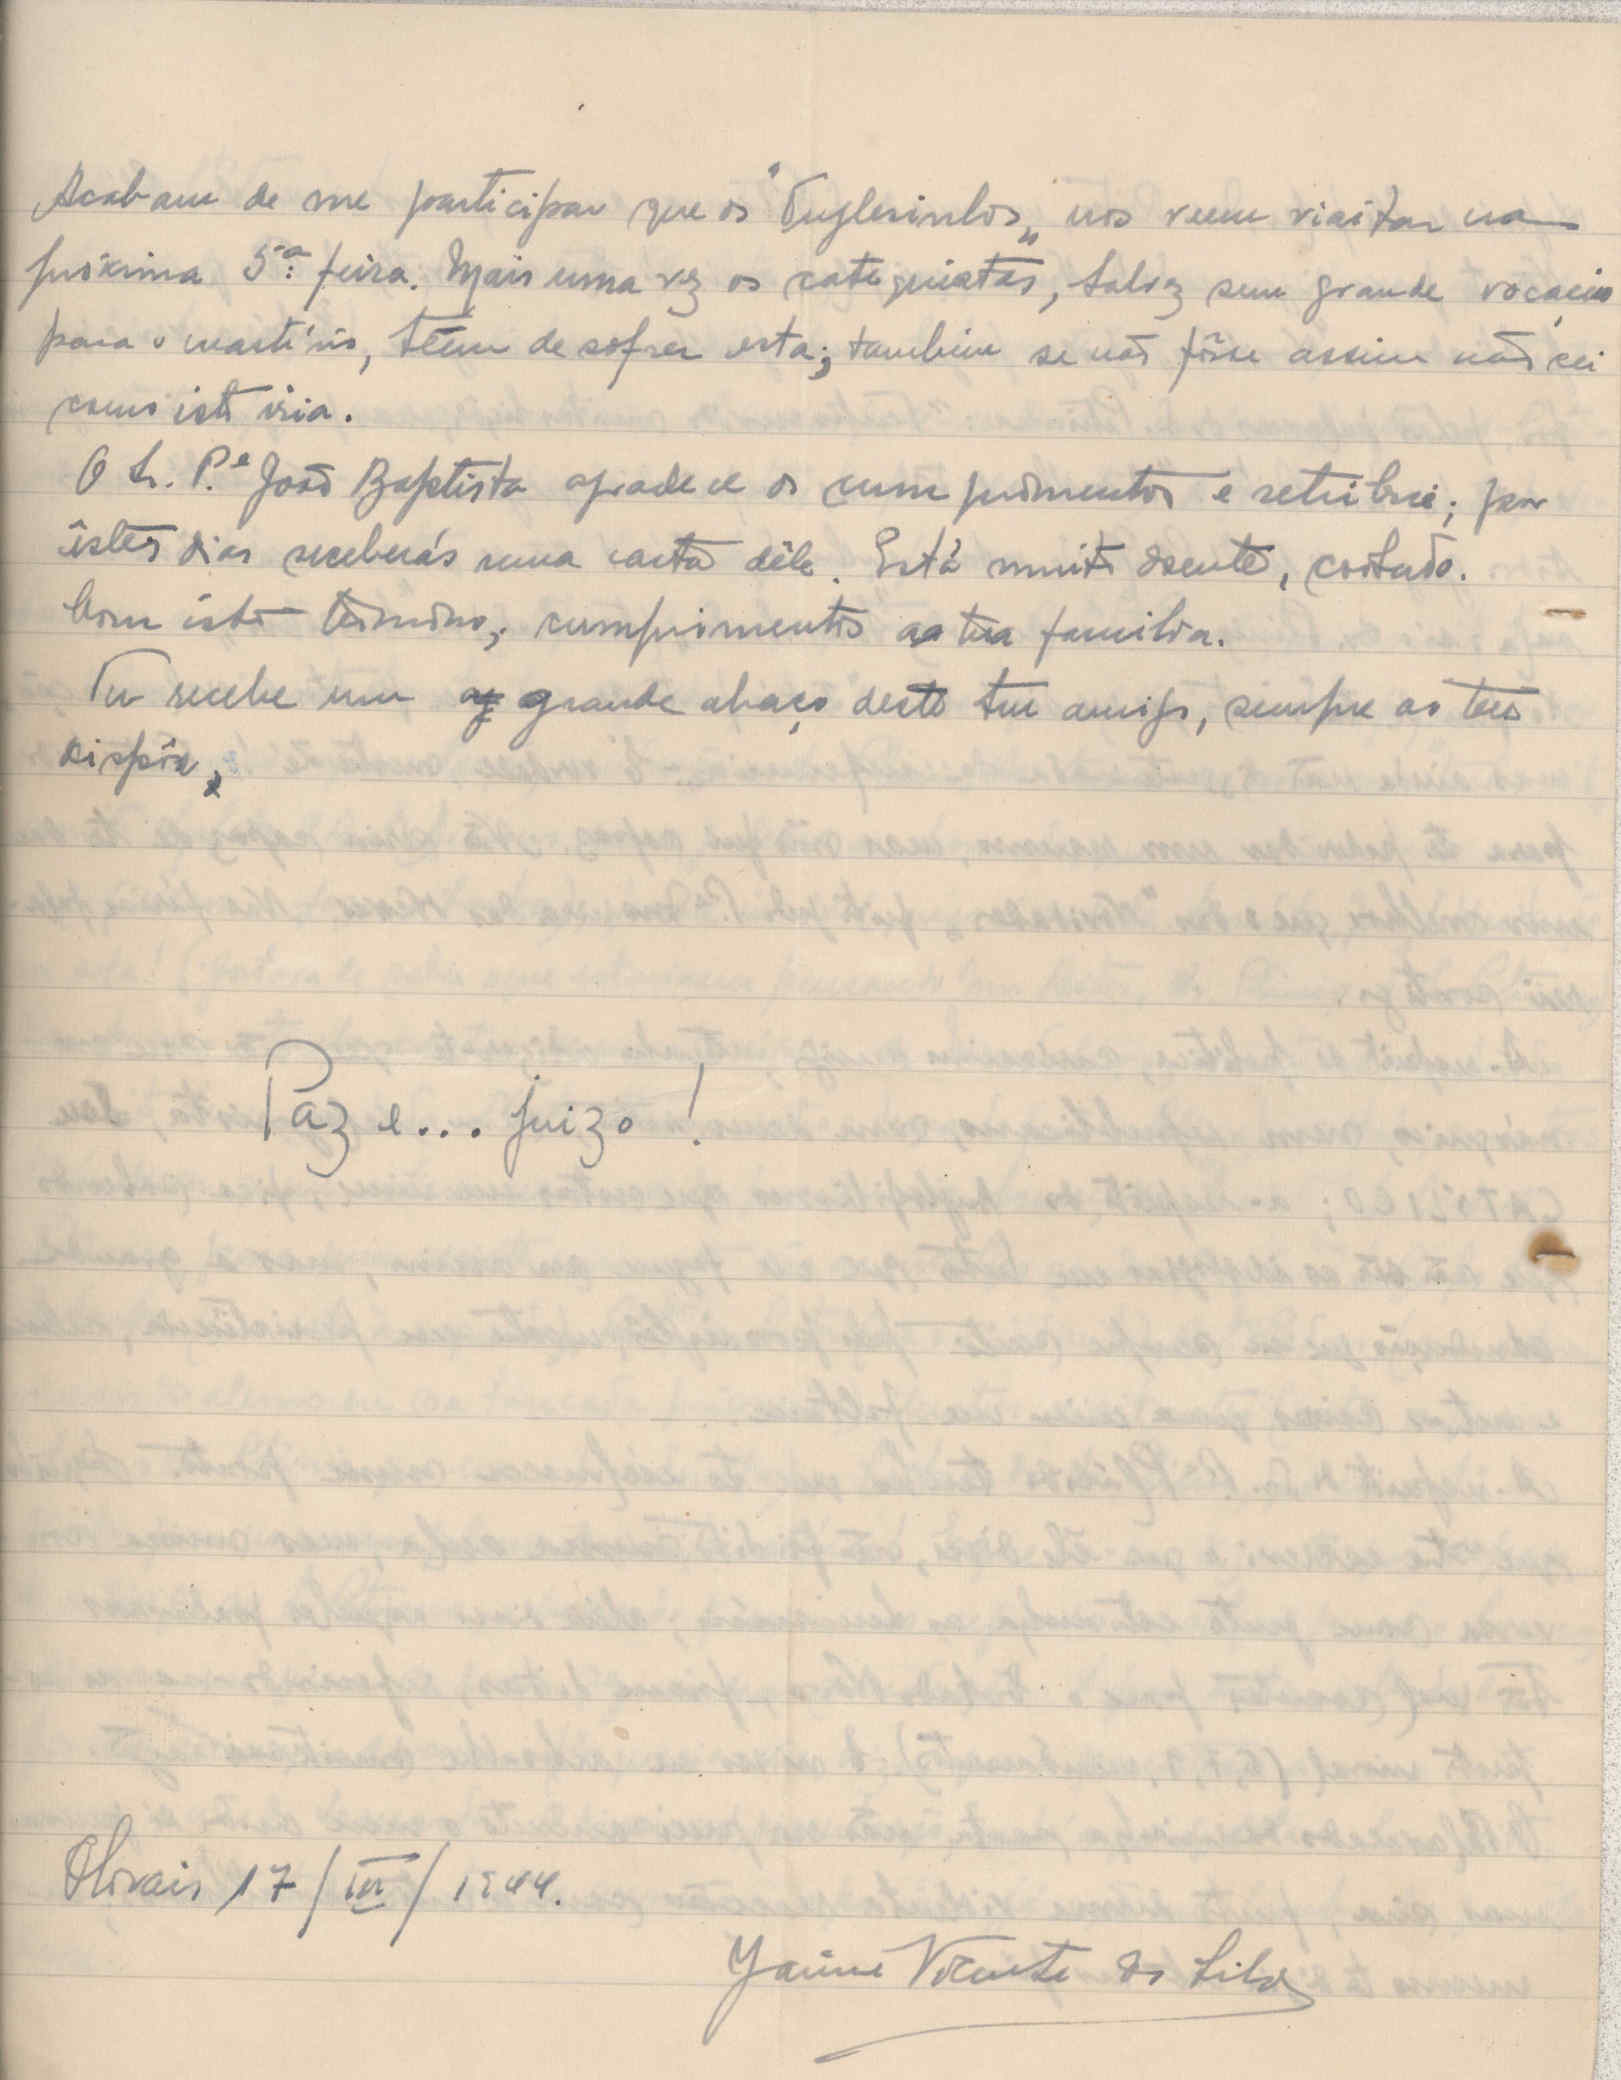 Acabam de me participar que os "Inglesinhos" nos veem visitar na
próxima 5.ª feira. Mais uma vez os catequistas, talvez sem grande vocação
para o martírio, têem de sofrer esta; tambem se não fôsse assim não sei
como isto iria.
O S. P.e João Baptista agradece os cumprimentos e retribui; por
êstes dias receberás uma carta dêle. Está muito doente, coitado.
Com isto termino; cumprimentos a tua familia.
Tu recebe um grande abraço deste teu amigo, sempre ao teu
dispôr,
Paz e... juizo!
Olivais 17/III/1944.
Jaime Vicente da Silva